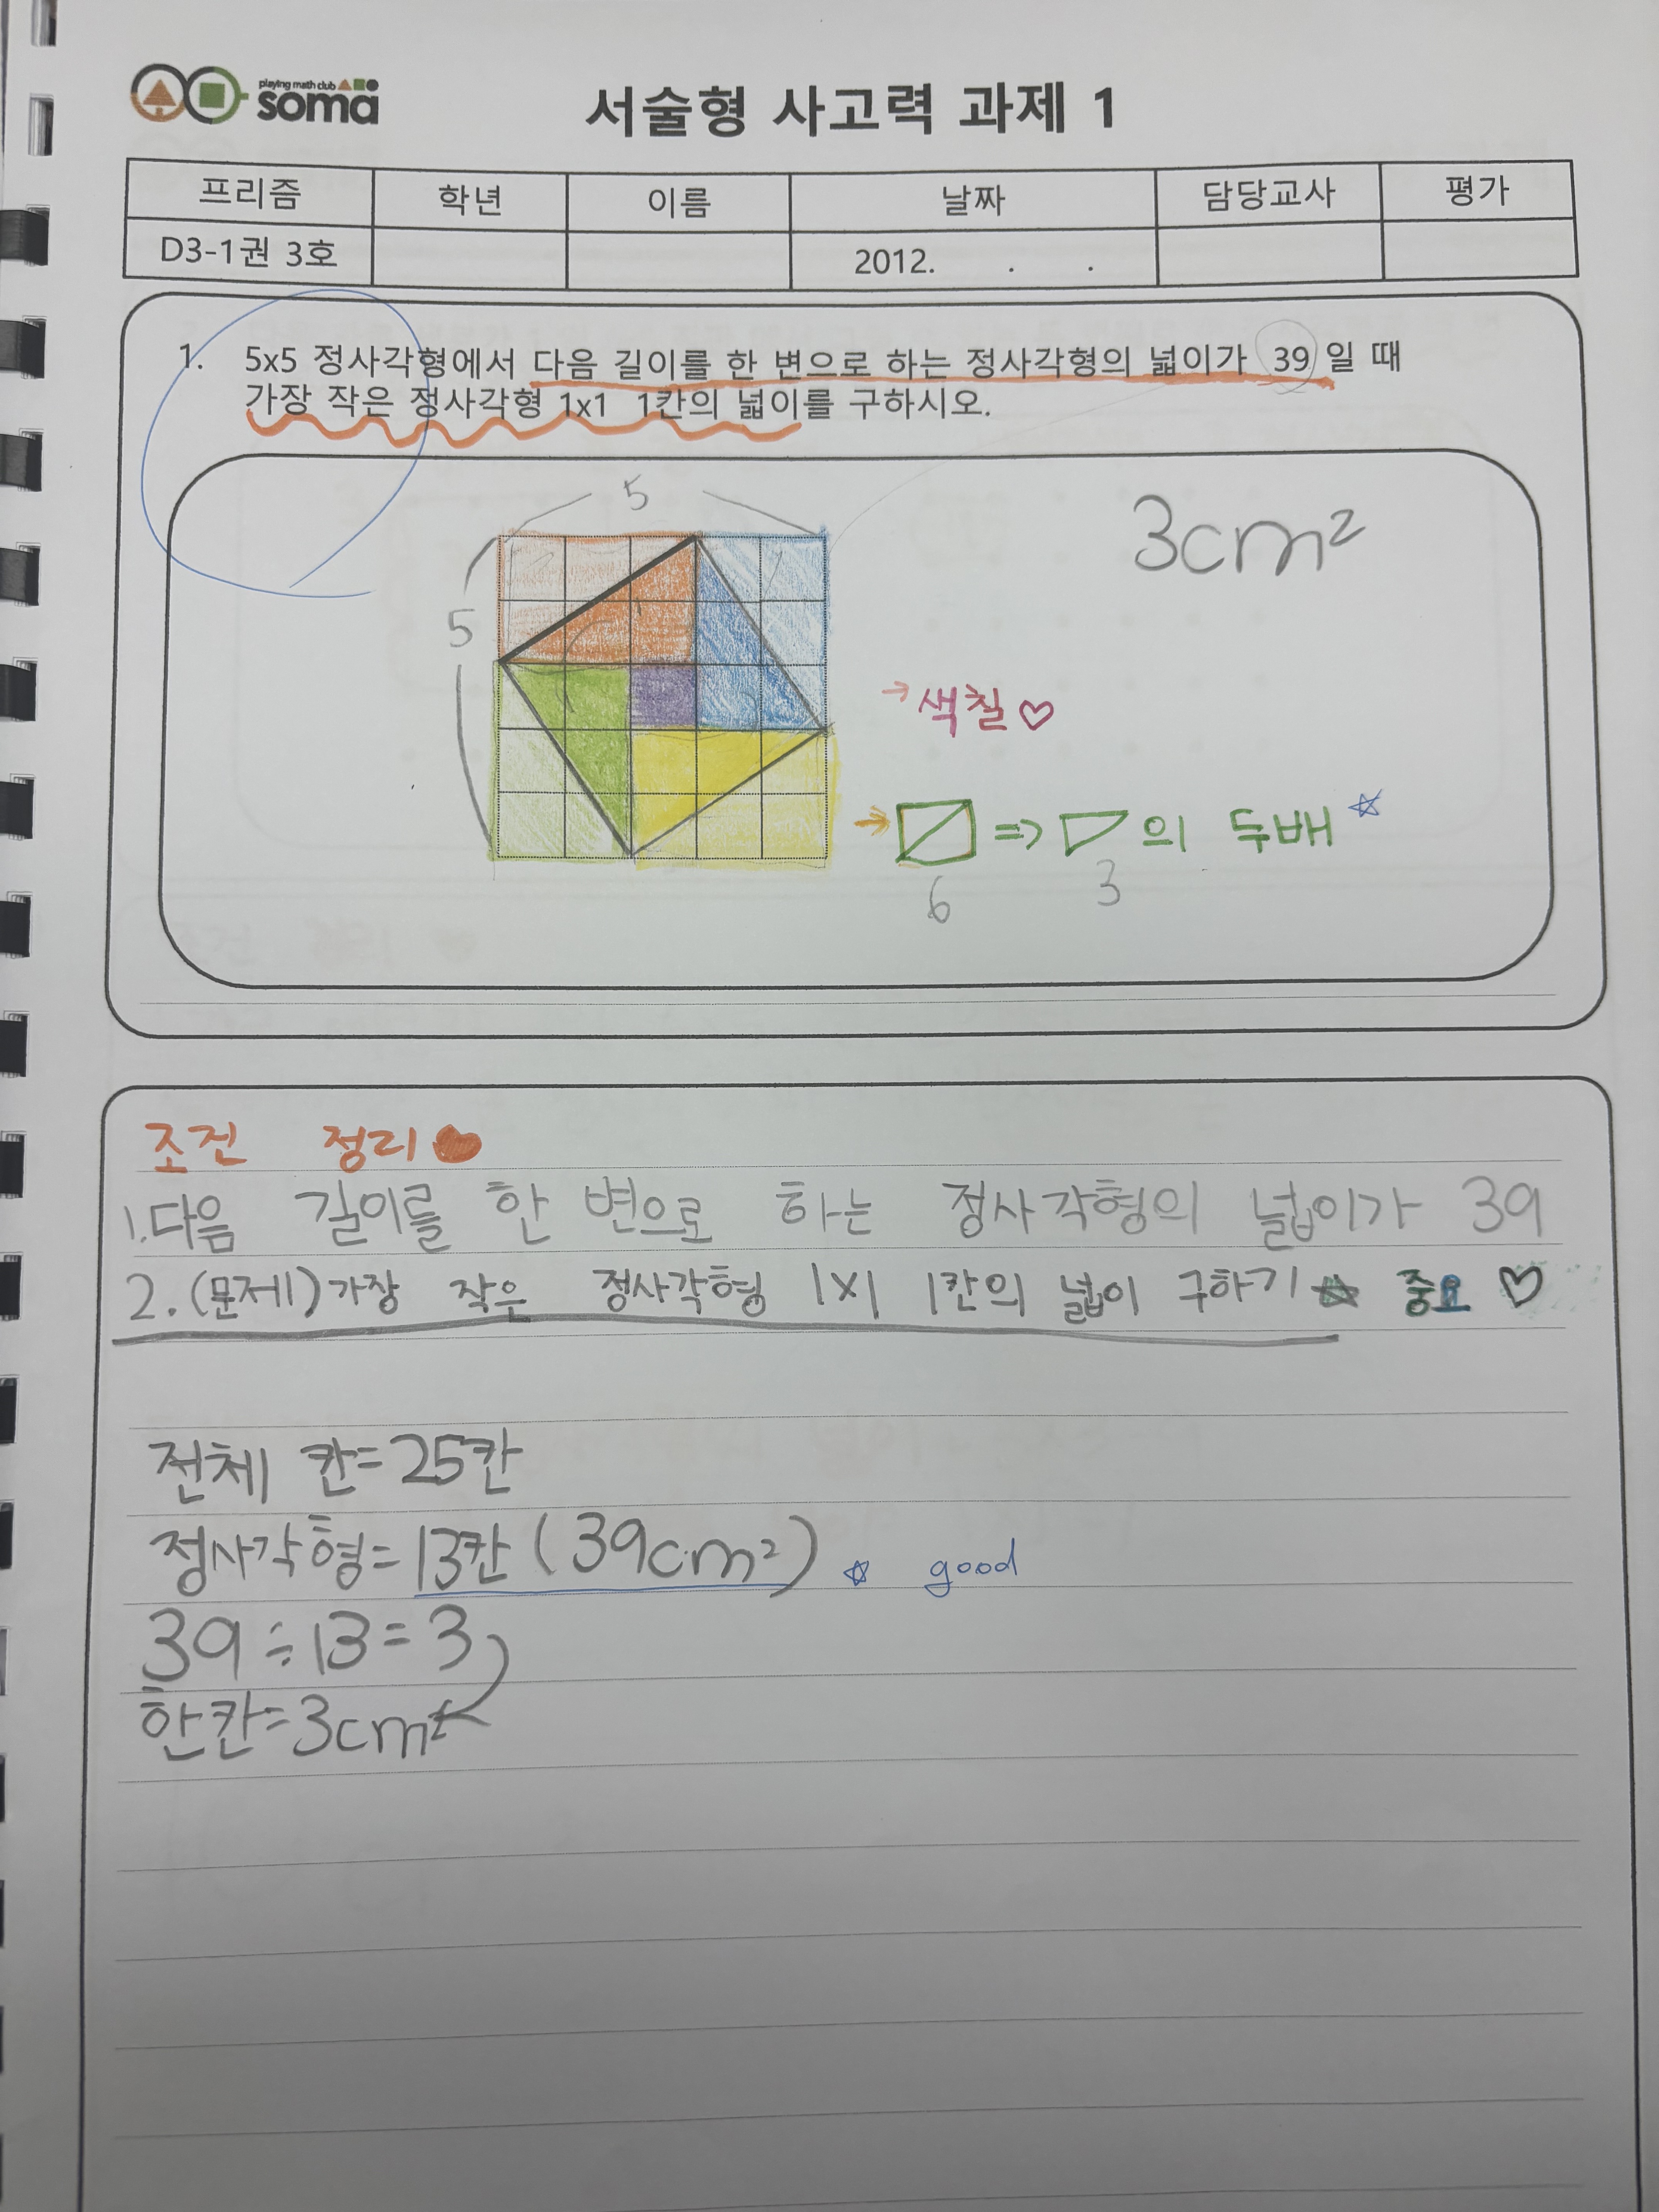 playing math club
soma
서술형 사고력 과제 1
프리즘 학년 이름 날짜 담당교사 평가
D3-1권 3호 2012. . .
1. 5x5 정사각형에서 다음 길이를 한 변으로 하는 정사각형의 넓이가 39 일 때
가장 작은 정사각형 1x1 1칸의 넓이를 구하시오.
5
3cm²
5
→ 색칠♡
→ ⇒ 의 두배 ☆
6 3
조건 정리
1. 다음 길이를 한 변으로 하는 정사각형의 넓이가 39
2. (문제) 가장 작은 정사각형 1x1 1칸의 넓이 구하기 ☆ 중요 ♡
전체 칸=25칸
정사각형=13칸 (39cm²) ☆ good
39÷13=3
한칸=3cm²